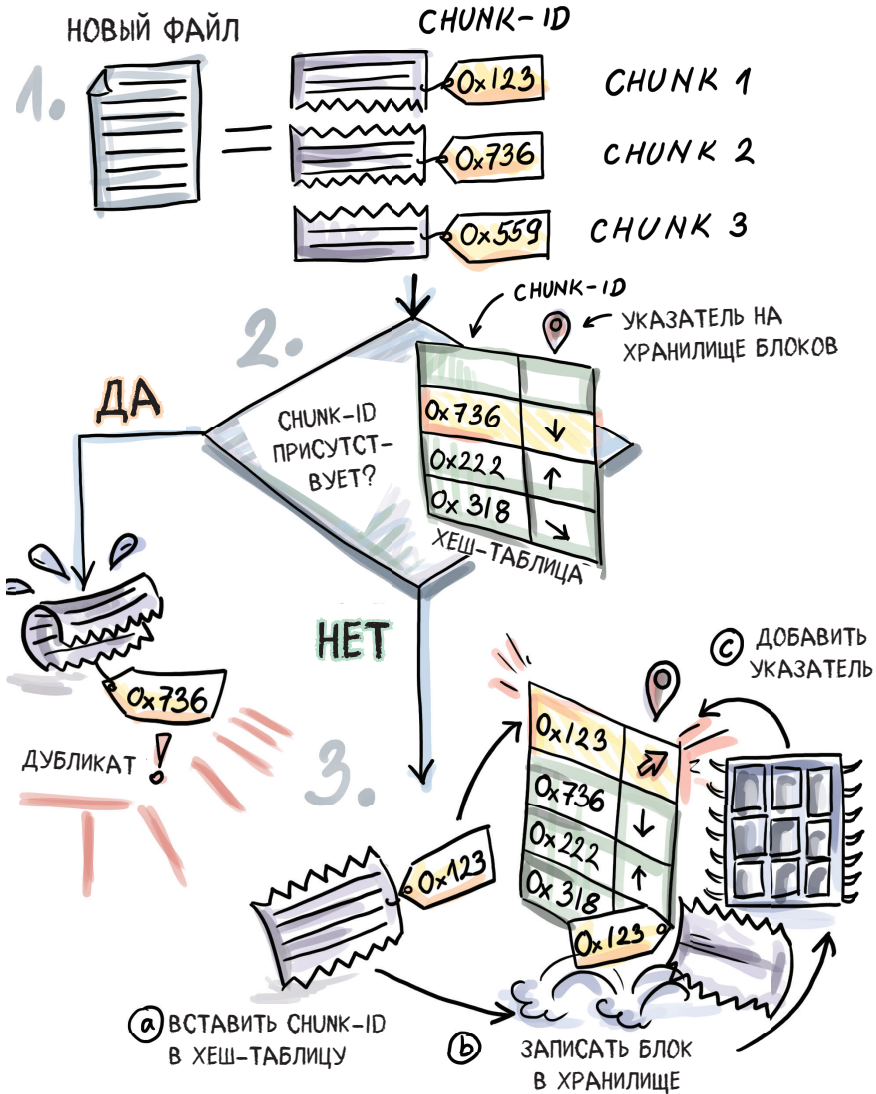 1.
НОВЫЙ ФАЙЛ
CHUNK-ID
0x123
CHUNK 1
0x736
CHUNK 2
0x559
CHUNK 3
2.
CHUNK-ID
УКАЗАТЕЛЬ НА
ХРАНИЛИЩЕ БЛОКОВ
ДА
CHUNK-ID
ПРИСУТСТ-
ВУЕТ?
0x736
0x222
0x318
ХЕШ-ТАБЛИЦА
НЕТ
0x736
ДУБЛИКАТ !
3.
c ДОБАВИТЬ
УКАЗАТЕЛЬ
0x123
0x736
0x222
0x318
0x123
0x123
a ВСТАВИТЬ CHUNK-ID
В ХЕШ-ТАБЛИЦУ
b ЗАПИСАТЬ БЛОК
В ХРАНИЛИЩЕ